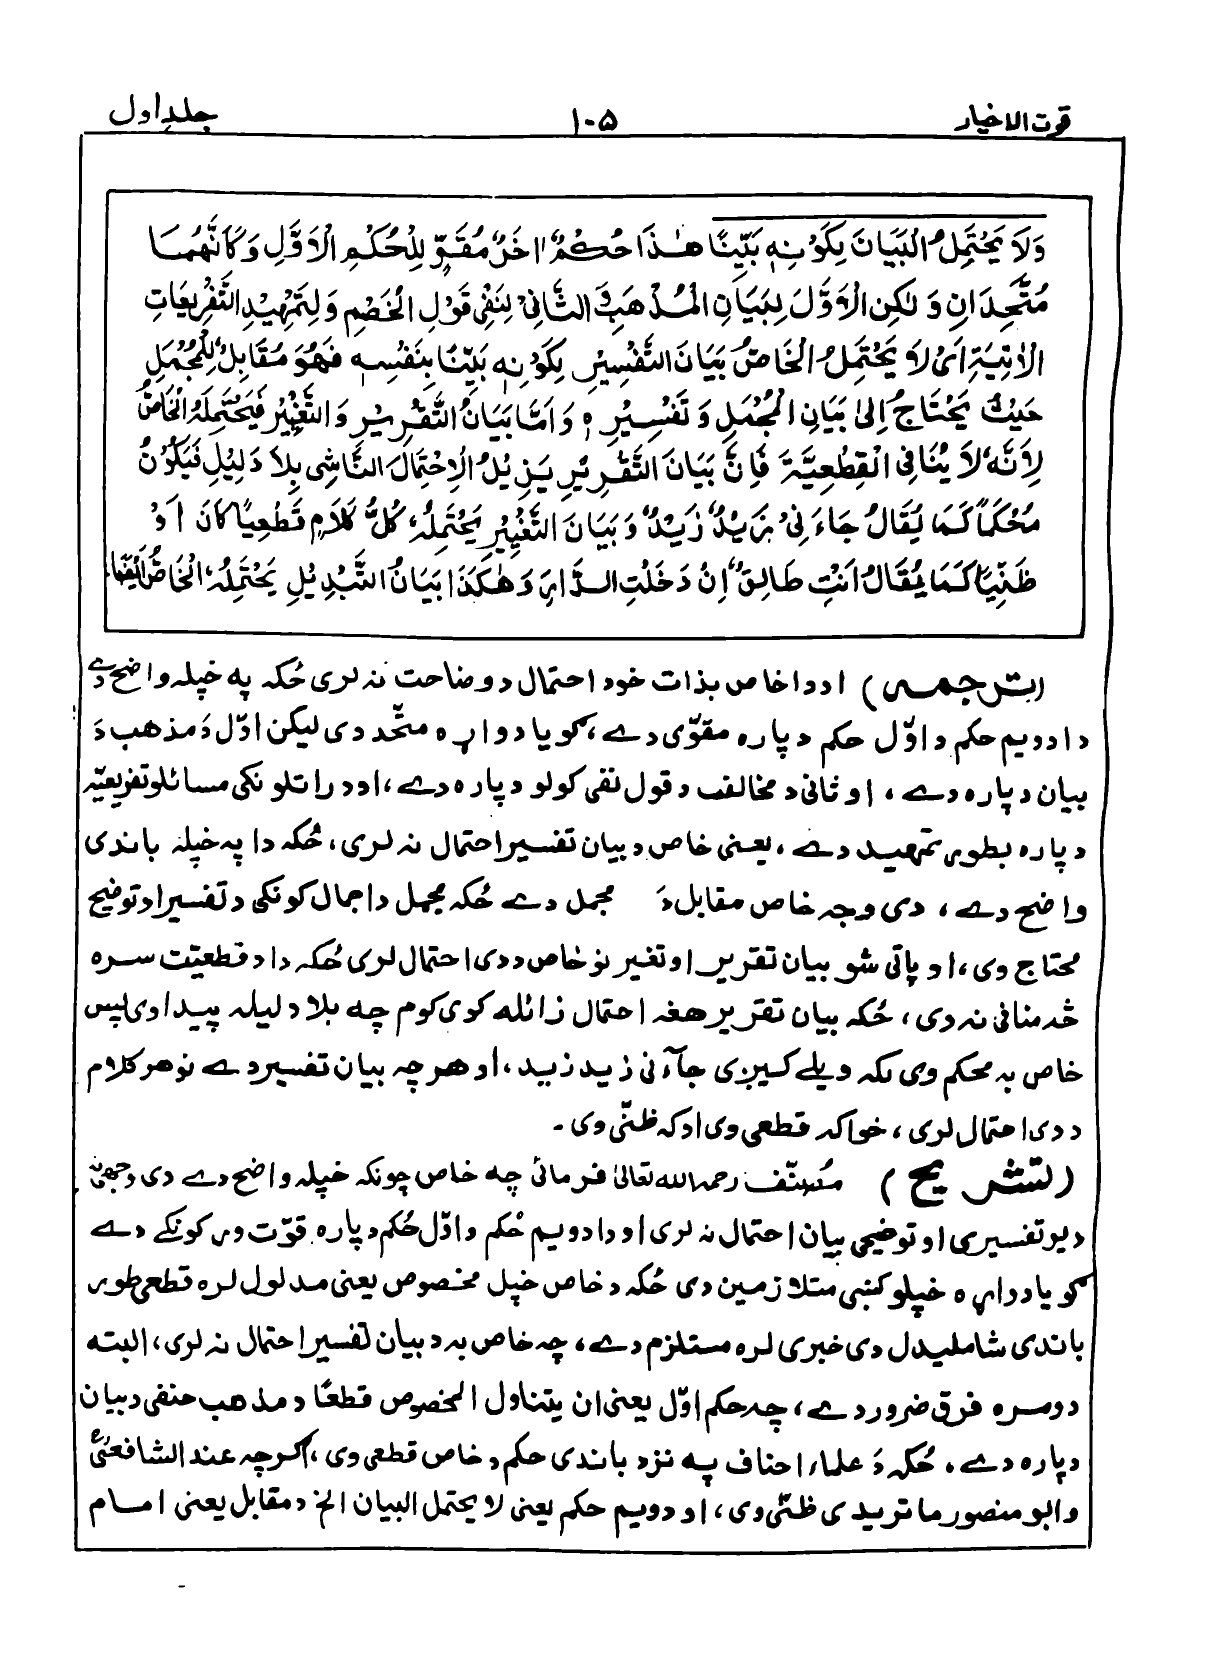 قوت الاخیار ۱۰۵ جلدِ اول
وَلَا يَحْتَمِلُ الْبَيَانَ لِكَوْنِهٖ بَيِّنًا هٰذَا حُكْمٌ اٰخَرُ مُقَوٍّ لِلْحُكْمِ الْاَوَّلِ وَكَانَّهُمَا
مُتَّحِدَانِ وَلٰكِنِ الْاَوَّلَ لِبَيَانِ الْمَذْهَبِ وَالثَّانِيْ لِنَفْيِ قَوْلِ الْخَصْمِ وَلِتَمْهِيْدِ التَّفْرِيْعَاتِ
الْاٰتِيَةِ اَىْ لَا يَحْتَمِلُ الْخَاصُّ بَيَانَ التَّفْسِيْرِ لِكَوْنِهٖ بَيِّنًا بِنَفْسِهٖ فَهُوَ مُقَابِلٌ لِلْمُجْمَلِ
حَيْثُ يَحْتَاجُ اِلٰى بَيَانِ الْمُجْمِلِ وَتَفْسِيْرِهٖ وَاَمَّا بَيَانُ التَّقْرِيْرِ وَالتَّغْيِيْرِ فَيَحْتَمِلُهُ الْخَاصُّ
لِاَنَّهٗ لَا يُنَافِي الْقَطْعِيَّةَ فَاِنَّ بَيَانَ التَّقْرِيْرِ يَزِيْلُ الْاِحْتِمَالَ النَّاشِيَ بِلَا دَلِيْلٍ فَيَكُوْنُ
مُحْكَمًا كَمَا يُقَالُ جَاءَنِيْ زَيْدٌ زَيْدٌ وَبَيَانَ التَّغْيِيْرِ يَحْتَمِلُهٗ كُلُّ كَلَامٍ قَطْعِيًّا كَانَ اَوْ
ظَنِّيًّا كَمَا يُقَالُ اَنْتِ طَالِقٌ اِنْ دَخَلْتِ الدَّارَ وَهٰكَذَا بَيَانُ التَّبْدِيْلِ يَحْتَمِلُهُ الْخَاصُّ اَيْضًا
(ترجمه) او دا خاص بذات خود احتمال د وضاحت نه لری ځکه په خپله واضح دے
دا دویم حکم د اوّل حکم دپاره مقوّی دے، کویا دواړه متّحد دی لیکن اوّل دَ مذهب دَ
بیان دپاره دے، او ثانی د مخالف د قول نفی کولو دپاره دے، او د راتلونکی مسائلو تفریعیّه
دپاره بطور تمهید دے، یعنی خاص د بیان تفسیر احتمال نه لری، ځکه دا په خپله باندی
واضح دے، دی وجه خاص مقابل دَ مجمل دے ځکه مجمل د اجمال کونکی د تفسیر او توضیح
محتاج وی، او پاتی شو بیان تقریر او تغیر نو خاص د دی احتمال لری ځکه دا د قطعیّت سره
څه منافی نه دی، ځکه بیان تقریر هغه احتمال زائله کوی کوم چه بلا دلیله پیدا وی پس
خاص به محکم وی لکه ویلے کیږی جآءنی زید زید، او هر چه بیان تفسیر دے نو هر کلام
د دی احتمال لری، خواکه قطعی وی او که ظنّی وی.
(تشریح) مُصنّف رحمه الله تعالیٰ فرمائی چه خاص چونکه خپله واضح دے دی وجهی نه
دیو تفسیری او توضیحی بیان احتمال نه لری او دا دویم حُکم د اوّل حُکم دپاره قوّت ورکونکے دے
کویا دواړه خپلو کښی متلازمین دی ځکه د خاص خپل مخصوص یعنی مدلول لره قطعی طور
باندی شاملیدل دی خبری لره مستلزم دے، چه خاص به د بیان تفسیر احتمال نه لری، البته
دومره فرق ضرور دے، چه حکم اوّل یعنی ان یتناول المخصوص قطعًا د مذهب حنفی د بیان
دپاره دے، ځکه دَ علماء احناف په نزد باندی حکم د خاص قطعی وی، اگرچه عند الشافعیؒ
وابو منصور ماتریدی ظنّی وی، او دویم حکم یعنی لا یحتمل البیان الخ د مقابل یعنی امام